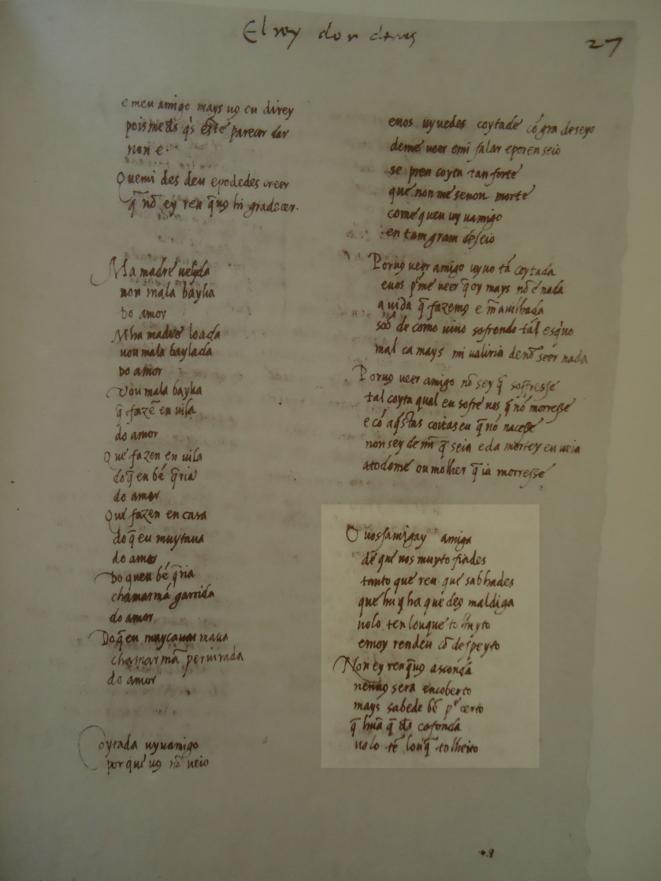 El rey don denis
27
e meu amigo mays uo eu direy
pois me ds q̄s este parecer dar
non e
Quemi des deu epodedes creer
q̄ nō ey ren q̄uo hi gradecer.
Ma madre uelyda
uou mala baylia
Do amor
Mha madre loada
uou mala baylada
Do amor
Vou mala baylia
q̄ fazē en uila
do amor
Que fazen en uila
do q̄ en bē q̄ria
do amor
Que fazen en casa
do q̄ eu muytaua
do amor
Do queu bē q̄ria
chamarmā garrida
do amor
Do q̄ eu muy maua
chamarmā periurada
do amor
Coytada uyuamigo
por que uo nō ueio
euos uyuedes coytade cō gra deseyo
deme ueer emi falar eporenseio
se pren coyta tan forte
que non me senon morte
come queu uyuamigo
en tam gram deseio
Poruo ueer amigo uyuo tā coytada
euos p me ueer q̄ oy mays nō e nada
a uida q̄ fazemo e marauilhada
soō de como uiuo sofrendo tal esquo
mal ca mays mi ualiria denō seer nada
Poruo ueer amigo nō sey q̄ sofresse
tal coyta qual eu sofre uos q̄ nō morresse
e cō aq̄stas coitas eu q̄ nō nacesse
non sey de mī q̄ seia e da mortey en ueia
a todome ou molher q̄ ia morresse
O uossamigay amiga
de que uos muyto fiades
tanto que reu que sabhades
que hūa q̄ ha que deo maldiga
uolo ten louque tolheyto
emoy rendeu cō despeyto
Non ey ren q̄uo asconda
nenuo sera encoberto
mays sabede bē pr certo
q̄ hūa q̄ ds cofonda
uolo tē louq̄ tolheito